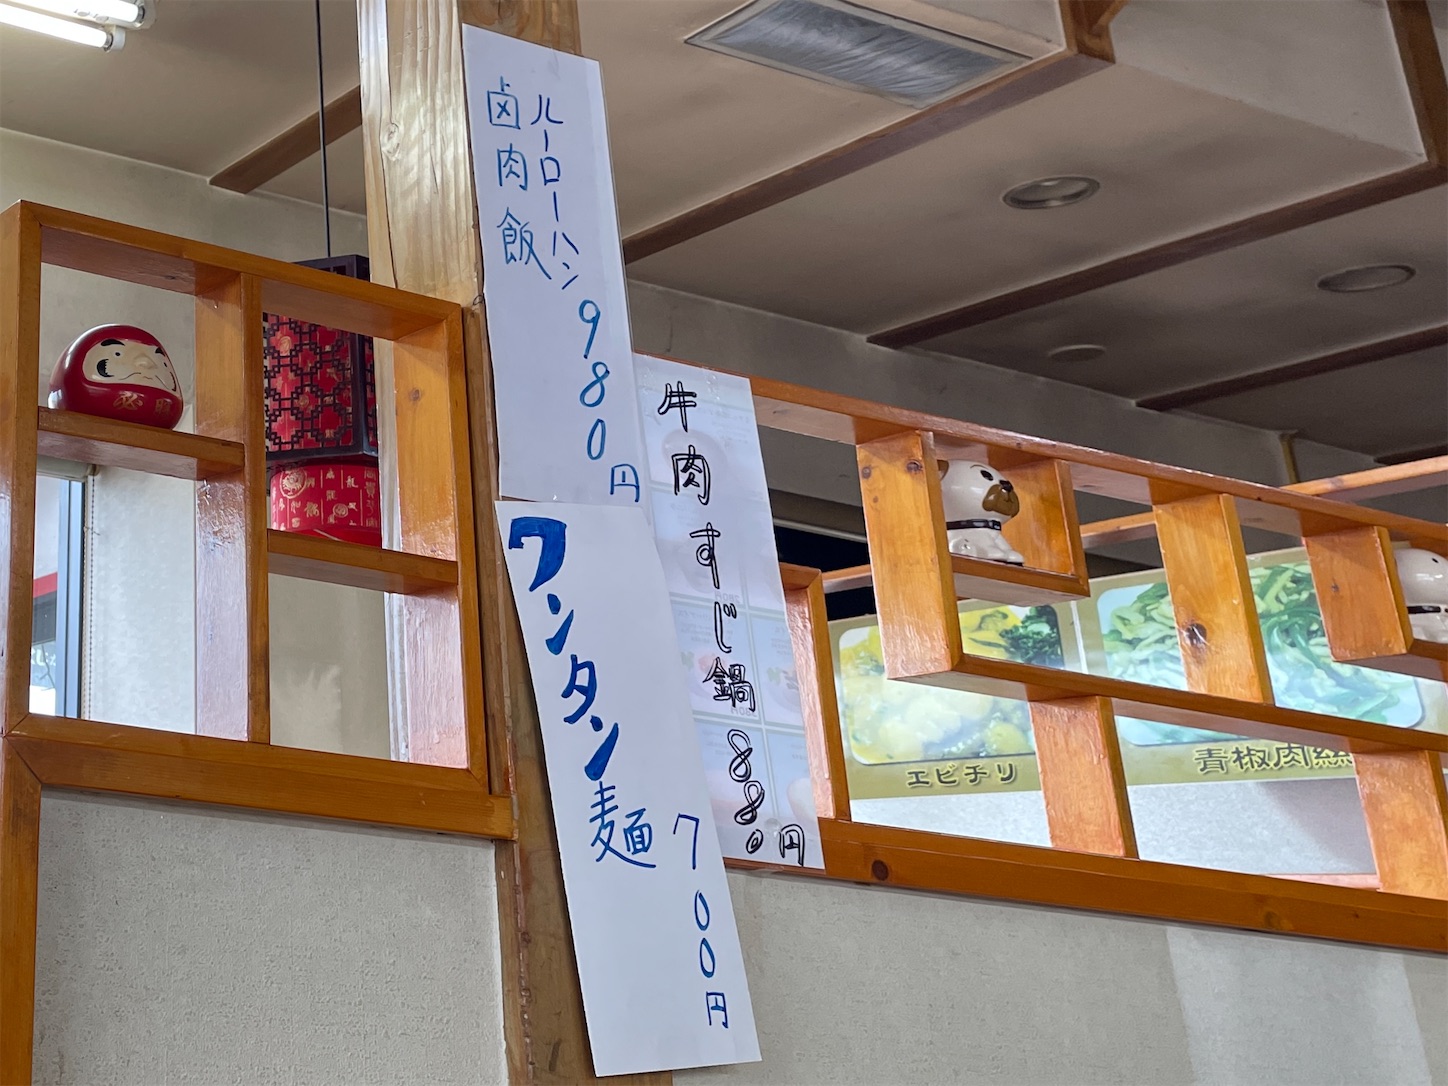 卤肉飯
ルーローハン
980円
ワンタン麺
700円
牛肉すじ鍋 880円
エビチリ
青椒肉絲